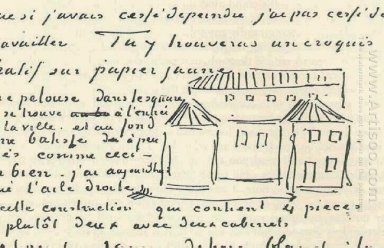 que si j'avais cessé de peindre j'ai pas cessé de
travailler. Tu y trouveras un croquis
hâtif sur papier jaune
une pelouse dans le square
se trouve à l'entrée
la ville. et au fond
une batisse à peu
près comme ceci –
h bien. j'ai aujourd'hui
l'aile droite
cette construction qui contient 4 pieces
plutôt deux avec deux cabinets